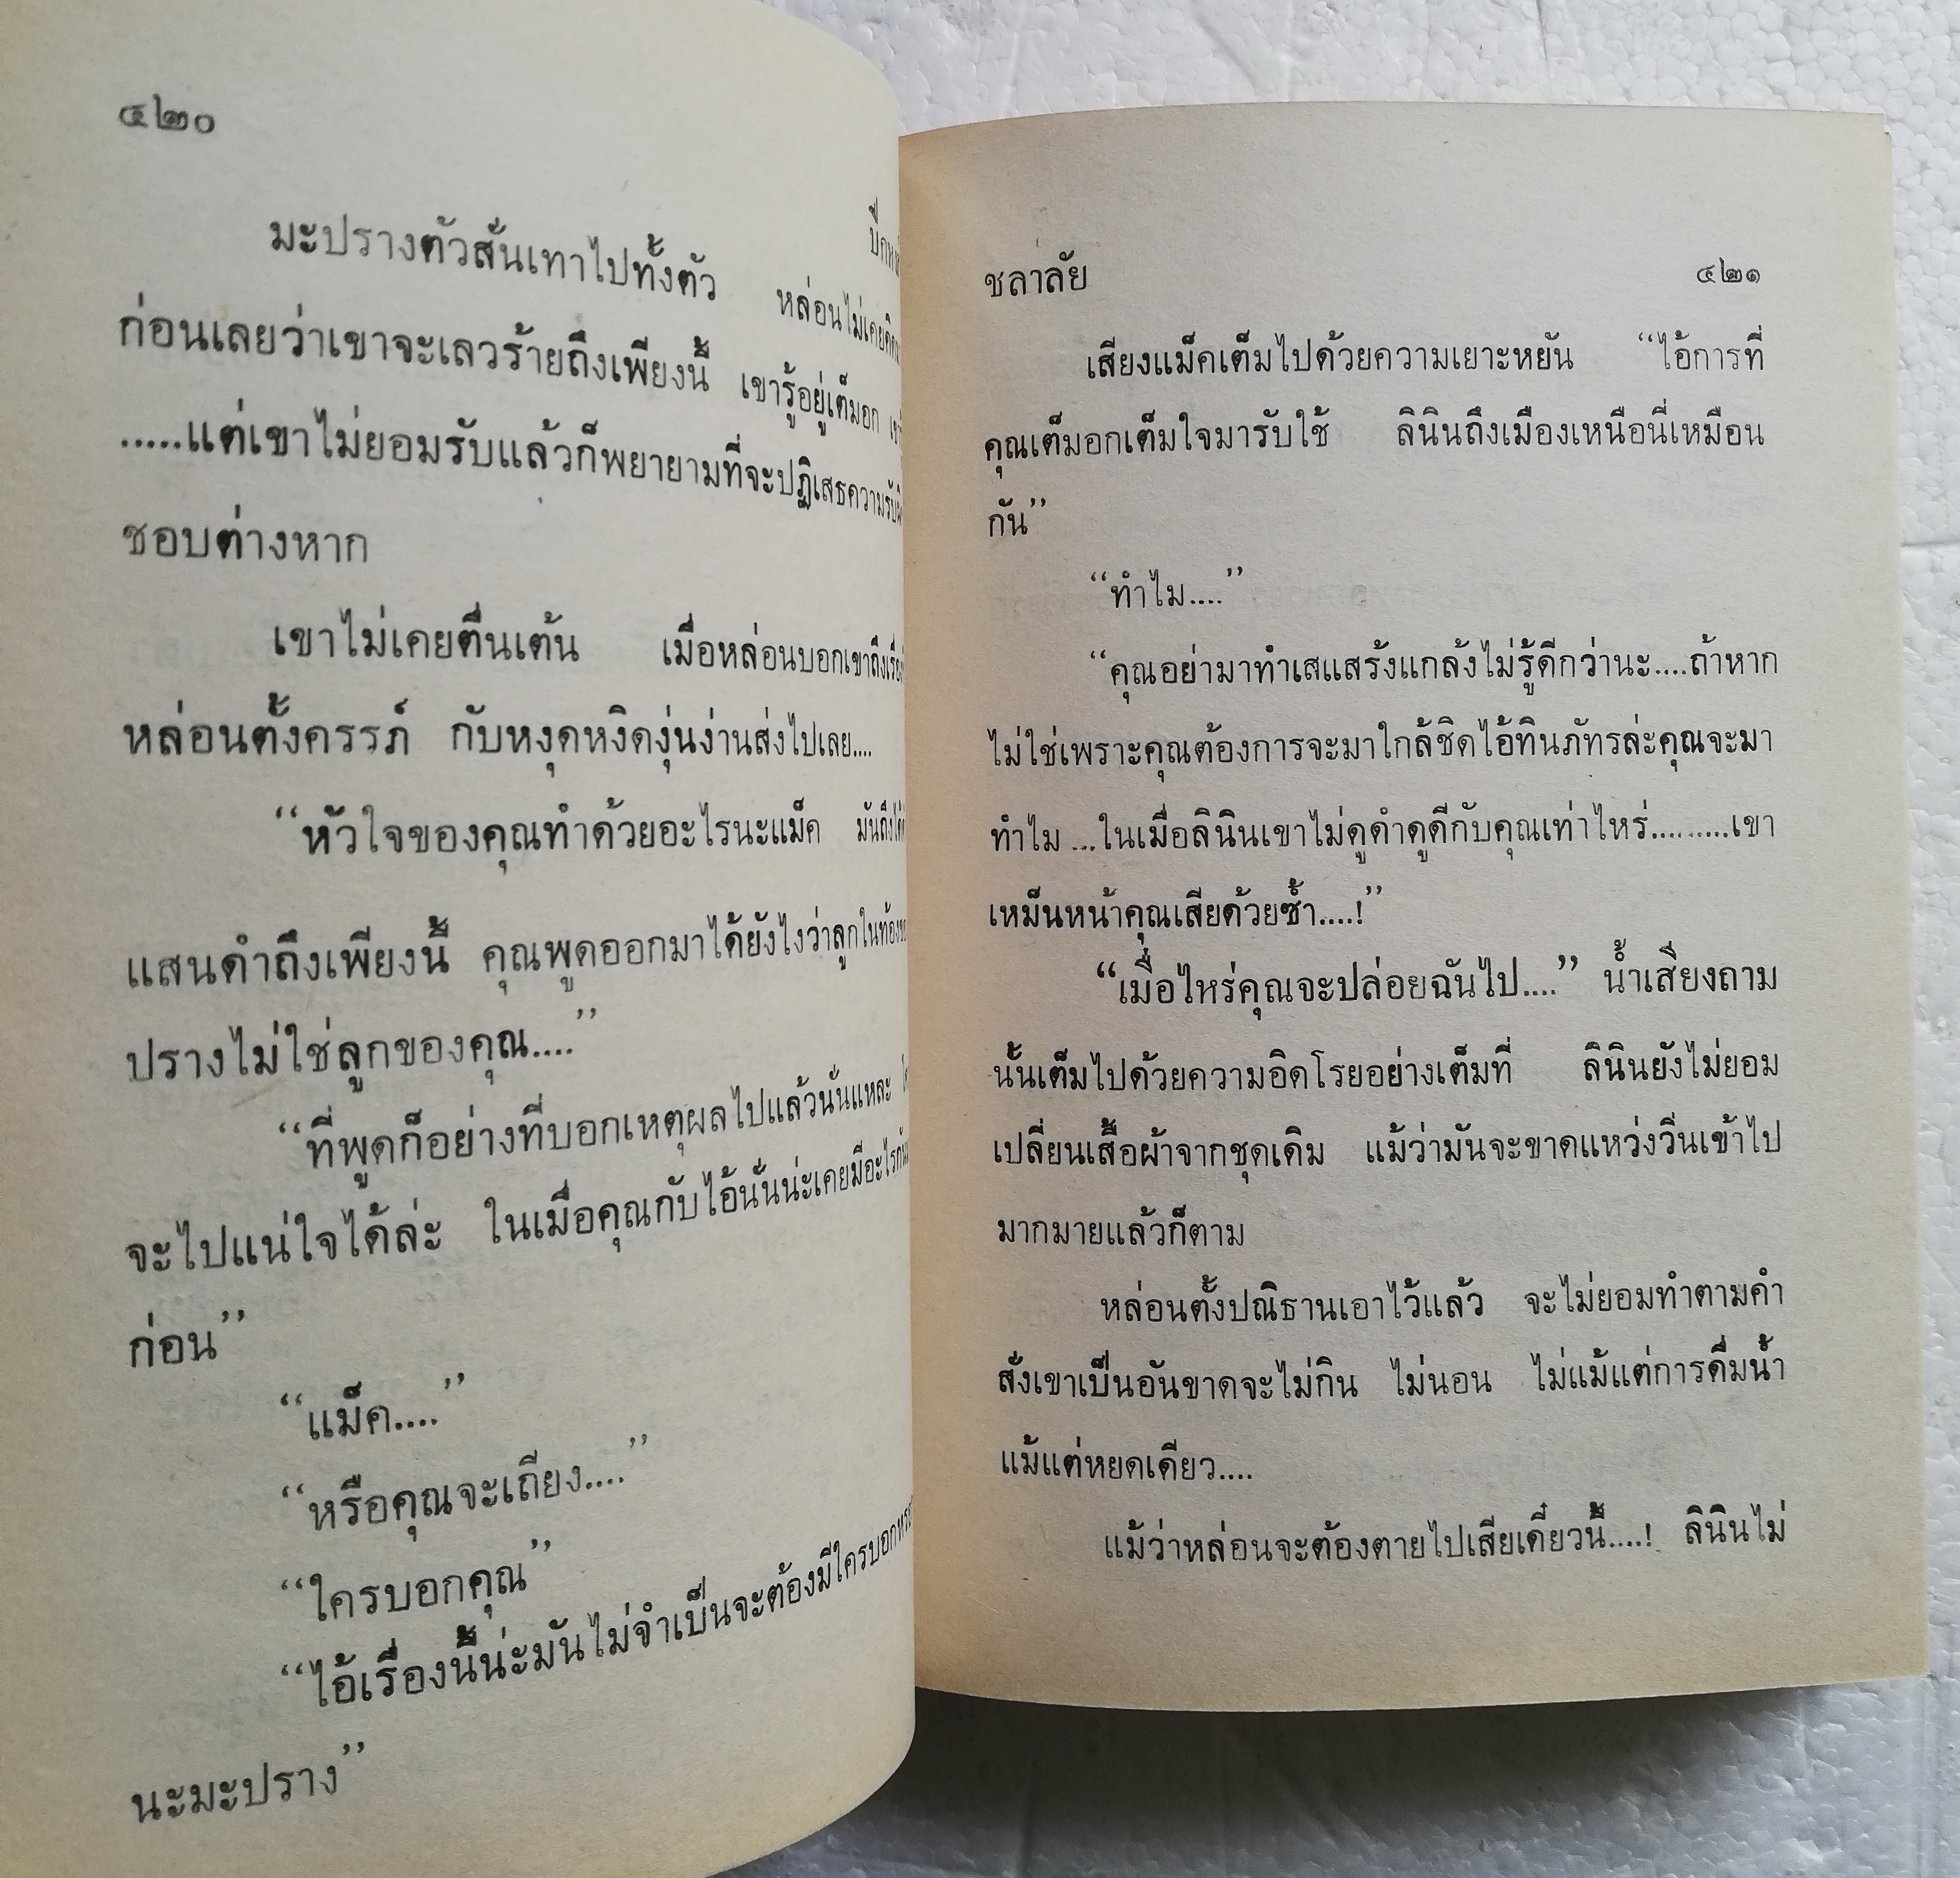 ๔๒๐
มะปรางตัวสั่นเทาไปทั้งตัว หล่อนไม่เคยคิด
ก่อนเลยว่าเขาจะเลวร้ายถึงเพียงนี้ เขารู้อยู่เต็มอก
.....แต่เขาไม่ยอมรับแล้วก็พยายามที่จะปฏิเสธความรับ
ชอบต่างหาก
เขาไม่เคยตื่นเต้น เมื่อหล่อนบอกเขาถึง
หล่อนตั้งครรภ์ กับหงุดหงิดงุ่นง่านส่งไปเลย....
“หัวใจของคุณทำด้วยอะไรนะแม็ค มันถึง
แสนดำถึงเพียงนี้ คุณพูดออกมาได้ยังไงว่าลูกในท้อง
ปรางไม่ใช่ลูกของคุณ....”
“ที่พูดก็อย่างที่บอกเหตุผลไปแล้วนั่นแหละ
จะไปแน่ใจได้ล่ะ ในเมื่อคุณกับไอ้นั่นน่ะเคยมีอะไร
ก่อน”
“แม็ค....”
“หรือคุณจะเถียง....”
“ใครบอกคุณ”
“ไอ้เรื่องนี้น่ะมันไม่จำเป็นจะต้องมีใครบอก
นะมะปราง”
ชลาลัย ๔๒๑
เสียงแม็คเต็มไปด้วยความเยาะหยัน “ไอ้การที่
คุณเต็มอกเต็มใจมารับใช้ ลินินถึงเมืองเหนือนี่เหมือน
กัน”
“ทำไม....”
“คุณอย่ามาทำเสแสร้งแกล้งไม่รู้ดีกว่านะ....ถ้าหาก
ไม่ใช่เพราะคุณต้องการจะมาใกล้ชิดไอ้ทินภัทรล่ะคุณจะมา
ทำไม ...ในเมื่อลินินเขาไม่ดูดำดูดีกับคุณเท่าไหร่.........เขา
เหม็นหน้าคุณเสียด้วยซ้ำ....!”
“เมื่อไหร่คุณจะปล่อยฉันไป....” น้ำเสียงถาม
นั้นเต็มไปด้วยความอิดโรยอย่างเต็มที่ ลินินยังไม่ยอม
เปลี่ยนเสื้อผ้าจากชุดเดิม แม้ว่ามันจะขาดแหว่งวิ่นเข้าไป
มากมายแล้วก็ตาม
หล่อนตั้งปณิธานเอาไว้แล้ว จะไม่ยอมทำตามคำ
สั่งเขาเป็นอันขาดจะไม่กิน ไม่นอน ไม่แม้แต่การดื่มน้ำ
แม้แต่หยดเดียว....
แม้ว่าหล่อนจะต้องตายไปเสียเดี๋ยวนี้....! ลินินไม่